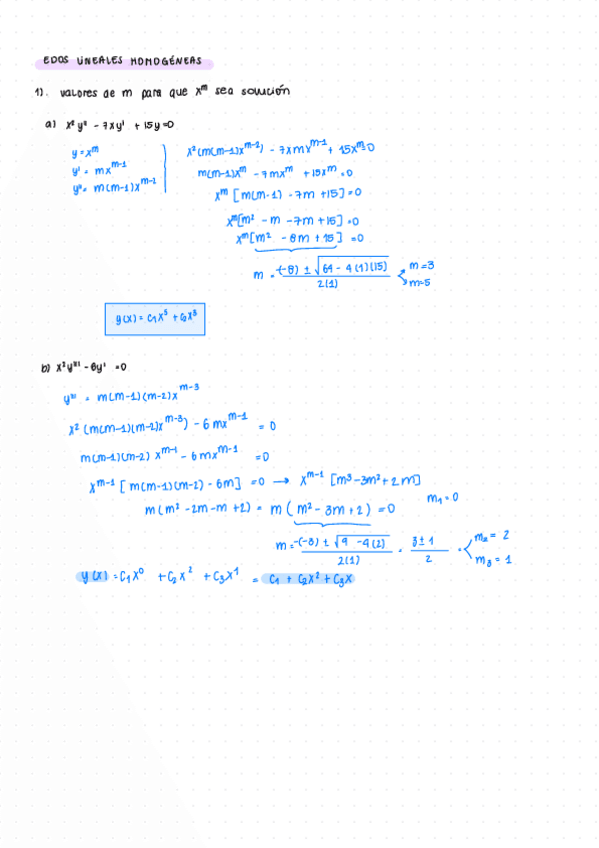 EDOS LINEALES HOMOGÉNEAS
1). valores de m para que x^m sea solución
a) x²y'' - 7xy' + 15y=0
y = x^m
y' = mx^(m-1)
y'' = m(m-1)x^(m-2)
x²(m(m-1)x^(m-2)) - 7xmx^(m-1) + 15x^m=0
m(m-1)x^m - 7mx^m + 15x^m = 0
x^m [m(m-1) - 7m + 15] = 0
x^m[m² - m - 7m + 15] = 0
x^m[m² - 8m + 15] = 0
m = (-(-8) ± √(64 - 4(1)(15))) / 2(1) m=3 m=5
y(x) = C₁x³ + C₂x⁵
b) x²y''' - 6y' = 0
y''' = m(m-1)(m-2)x^(m-3)
x² (m(m-1)(m-2)x^(m-3)) - 6mx^(m-1) = 0
m(m-1)(m-2) x^(m-1) - 6mx^(m-1) = 0
x^(m-1) [m(m-1)(m-2) - 6m] = 0 → x^(m-1) [m³-3m²+2m]
m(m² - 2m - m + 2) = m(m² - 3m + 2) = 0 m₁ = 0
m = (-(-3) ± √(9 - 4(2))) / 2(1) = (3 ± 1) / 2 = m₂ = 2 m₃ = 1
y(x) = C₁x⁰ + C₂x² + C₃x¹ = C₁ + C₂x² + C₃x